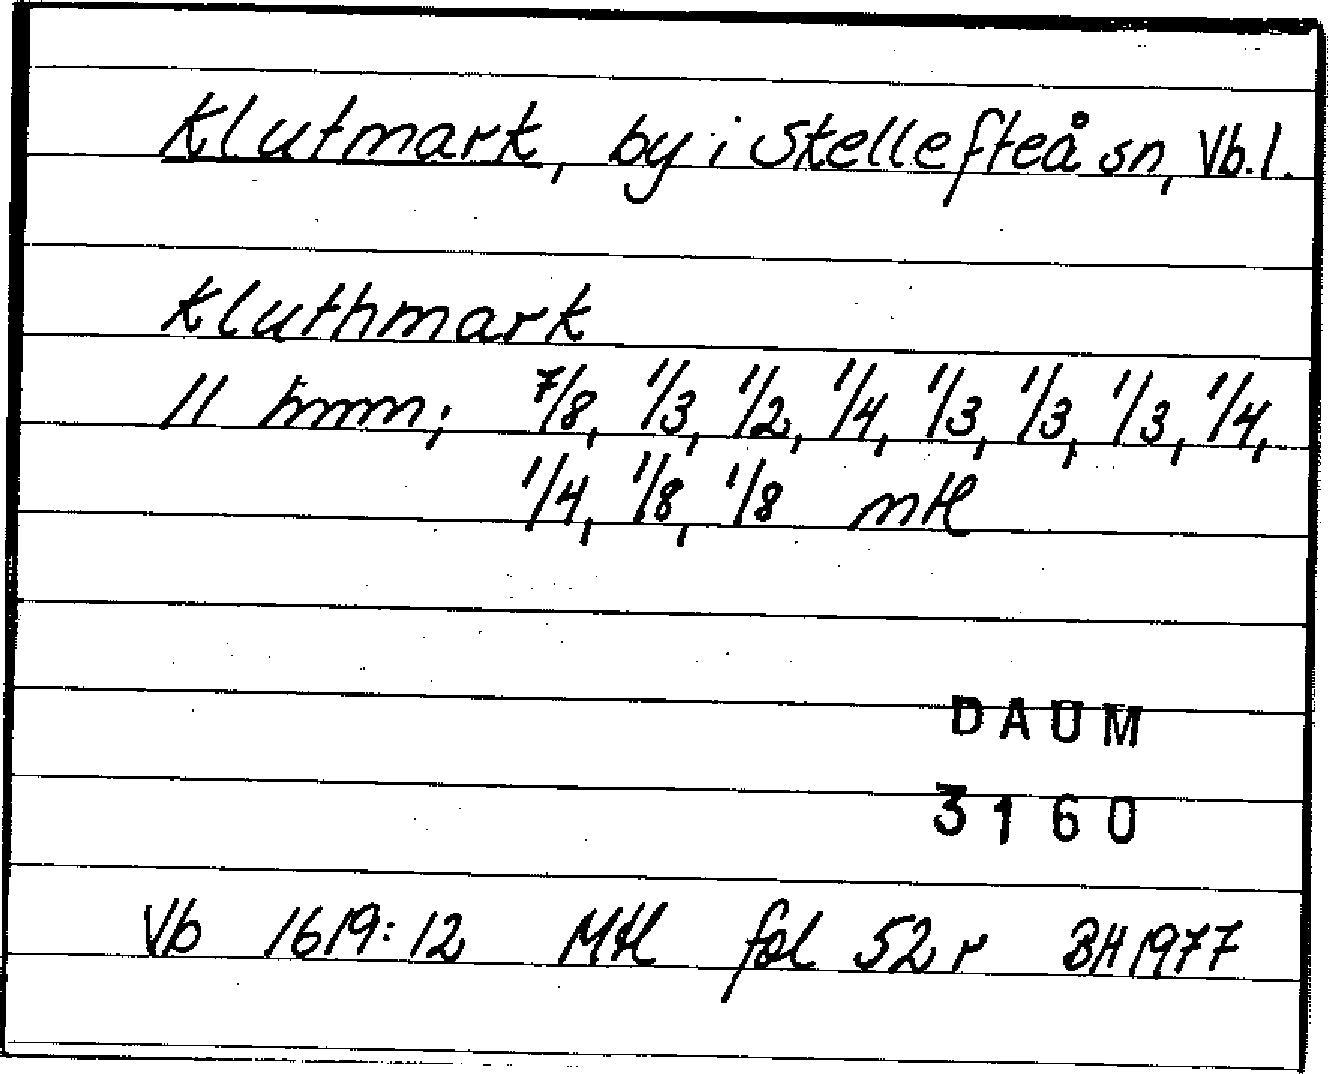 Klutmark, by i Skellefteå sn, Vb.l.
Kluthmark
11 hmm; 7/8, 1/3, 1/2, 1/4, 1/3, 1/3, 1/3, 1/4,
1/4, 1/8, 1/8 mtl
DAUM
3160
Vb 1619:12 Mtl fol 52 r BH 1977